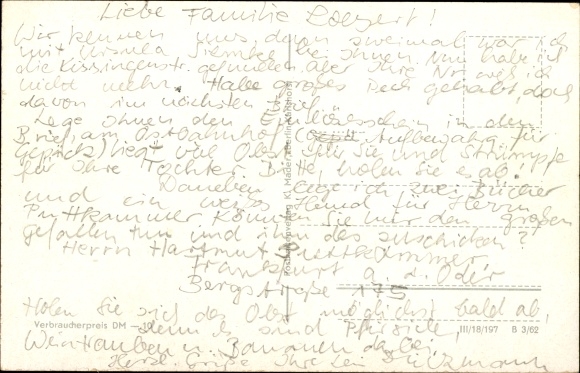 Liebe Familie
Wir kennen uns, denn zweimal war ich
mit Ursula bei Ihnen. Nun habe ich
die Kissingenstr. gefunden, aber Ihre Nr. weiß ich
nicht mehr. Habe großes Pech gehabt, doch
davon im nächsten Brief.
Lege Ihnen den Einlöseschein in den
Brief, am Ostbahnhof Aufbewahr. für
Gepäck) liegt viel Obst für Sie und Strümpfe
für Ihre Tochter. Bitte, holen Sie es ab.
Daneben lege ich zwei Bücher
und ein weißes Hemd für Herrn
Puttkammer. Können Sie mir den großen
gefallen tun und ihm das zuschicken?
Herrn Hartmut Puttkammer
Frankfurt a. d. Oder
Bergstraße 175
Holen Sie sich das Obst möglichst bald ab,
denn es sind Pfirsiche,
Weintrauben u. Bananen dabei.
Herzl. Grüße Ihre
Verbraucherpreis DM -,20
III/18/197 B 3/62